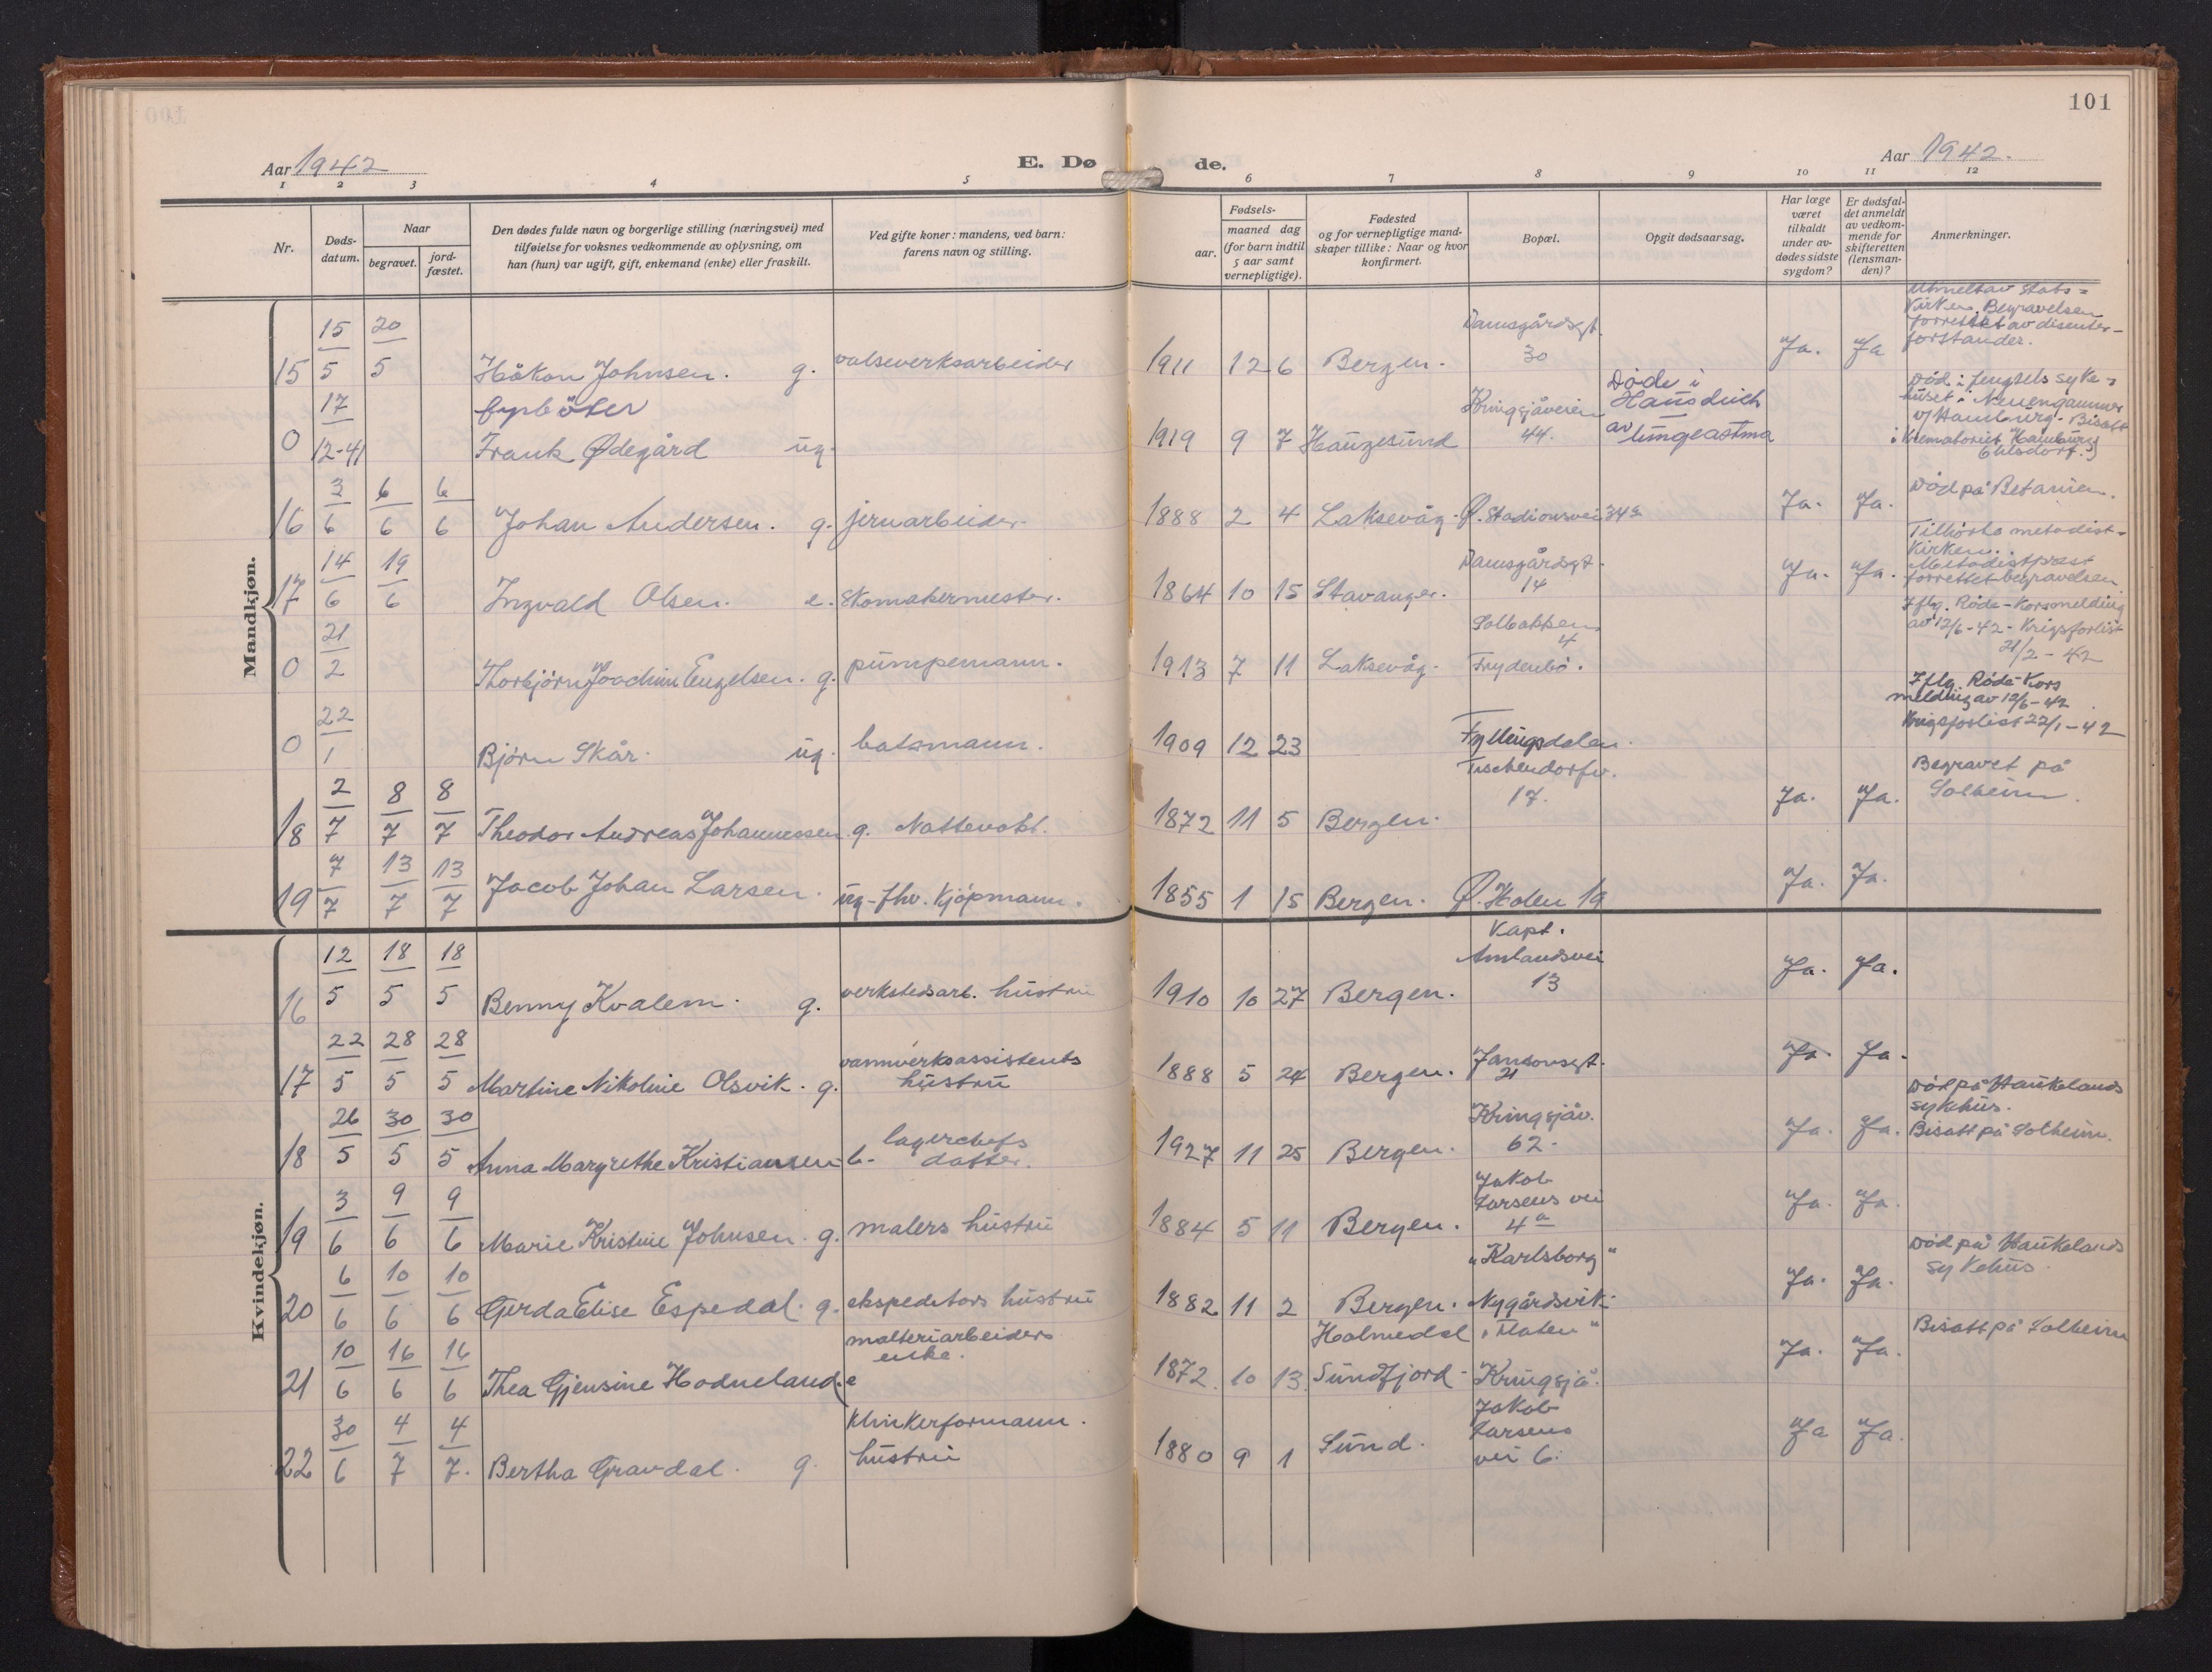 101
Aar 1942
E. Døde.
Aar 1942.
1 2 3 4 5 6 7 8 9 10 11 12
Nr.
Døds-
datum.
Naar
begravet.
jord-
fæstet.
Den dødes fulde navn og borgerlige stilling (næringsvei) med
tilføielse for voksnes vedkommende av oplysning, om
han (hun) var ugift, gift, enkemand (enke) eller fraskilt.
Ved gifte koner: mandens, ved barn:
farens navn og stilling.
Fødsels-
aar.
maaned dag
(for barn indtil
5 aar samt
vernepligtige).
Fødested
og for vernepligtige mand-
skaper tillike: Naar og hvor
konfirmert.
Bopæl.
Opgit dødsaarsag.
Har læge
været
tilkaldt
under av-
dødes sidste
sygdom?
Er dødsfal-
det anmeldt
av vedkom-
mende for
skifteretten
(lensman-
den)?
Anmerkninger.
Mandkjøn.
15 15/5 20/5 Håkon Johnsen. g. valseverksarbeider 1911 12 6 Bergen. Damsgårdsgt. 30 Ja. Ja
Utmeldt av Stats-
kirken. Begravelsen
forrettet av disenter-
forstander.
0 17/12-41 fyrbøter
Frank Ødegård ug. 1919 9 7 Haugesund Kringsjåveien 44.
Døde i
av lungeastma
Død i fengsels syke-
huset i Neuengammer
v/ Hamburg. Bisatt
i Krematoriet Hamburg
Ohlsdorf.
16 3/6 6/6 6/6 Johan Andersen. g. jernarbeider. 1888 2 4 Laksevåg. Ø. Stadionsvei 34a Ja. Ja. Død på Betanien.
17 14/6 19/6 Ingvald Olsen. e. Skomakermester. 1864 10 15 Stavanger. Damsgårdsgt. 14 Ja. Ja.
Tilhørte metodist-
kirken.
Metodistprest
forrettet begravelsen
0 21/2 Thorbjørn Joachim Engelsen. g. pumpemann. 1913 7 11 Laksevåg. Solbakken 4 Frydenbø.
Iflg. Røde-Korsmelding
av 12/6-42 - Krigsforlist
21/2-42
0 22/1 Bjørn Skår. ug. batsmann. 1909 12 23 Fyllingsdalen.
Iflg. Røde-Kors
melding av 12/6-42.
Krigsforlist 22/1-42
18 2/7 8/7 8/7 Theodor Andreas Johannessen g. Nattevakt. 1872 11 5 Bergen. Tischendorfv. 17. Ja. Ja.
Begravet på
Solheim.
19 7/7 13/7 13/7 Jacob Johan Larsen. ug - fhv. Kjøpmann. 1855 1 15 Bergen. Ø. Holen 19 Ja. Ja.
Kvindekjøn.
16 12/5 18/5 18/5 Benny Kvalem. g. verkstedsarb. hustru 1910 10 27 Bergen. Kapt. Amlandsvei 13 Ja. Ja.
17 22/5 28/5 28/5 Martine Nikoline Olsvik. g. vannverksassistents hustru 1888 5 24 Bergen. Jansonsgt. 21 Ja. Ja.
18 26/5 30/5 30/5 Anna Margrethe Kristiansen b. lagerchefs datter. 1927 11 25 Bergen. Kringsjåv. 62. Ja. Ja.
Død på Haukelands
sykehus.
Bisatt på Solheim.
19 3/6 9/6 9/6 Marie Kristine Johnsen. g. malers hustru 1884 5 11 Bergen. Jakob Larsens vei 4a Ja. Ja.
20 6/6 10/6 10/6 Gerda Elise Espedal. g. ekspeditørs hustru 1882 11 2 Bergen. "Karlsborg" Nygårdsvik. Ja. Ja.
Død på Haukelands
sykehus.
21 10/6 16/6 16/6 Thea Gjensine Hodneland. e malteriarbeiders enke. 1872. 10 13. Holmedal Sundfjord. Kringsjå. Ja. Ja.
Bisatt på Solheim
22 30/6 4/7 4/7. Bertha Gravdal. g. klinkerformann. hustru 1880 9 1 Sund. Jakob Larsens vei 6. Ja Ja.